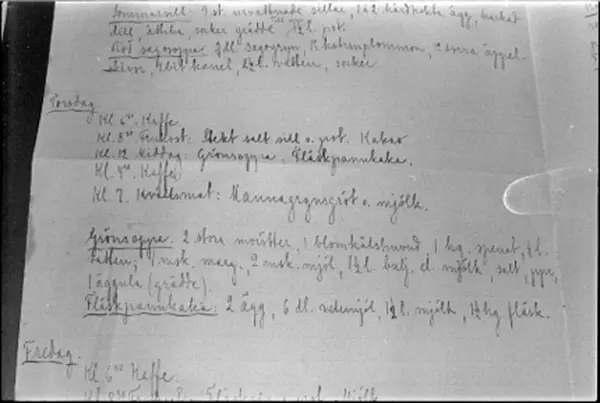 Sommarsill: 9 st. urvattnade sillar, 1 à 2 hårdkokta ägg, hackad
dill, ättika, socker grädde till 1½ l. pot.
Röd sagosoppa 2 dl. sagogryn, 12 katrinplommon, 2 torra äppel
litet kanel, 2½ l. vatten, socker
Torsdag
Kl. 6 30. Kaffe
Kl. 8 30 Frukost: Stekt salt sill o. pot. Kakao
Kl. 12 Middag: Grönsoppa. Fläskpannkaka.
Kl. Kaffe
Kl. 7. Kvällsmat: Mannagrynsgröt o. mjölk.
Grönsoppa: 2 stora morötter, 1 blomkålshuvud, 1 hg. spenat, l.
vatten; 1 msk. marg., 2 msk. mjöl, 1½ l. bulj. el. mjölk, salt,
1 äggula (grädde).
Fläskpannkaka: 2 ägg, 6 dl. vetemjöl, 1½ l. mjölk, 1½ hg. fläsk.
Fredag.
Kl. 6 30 Kaffe.